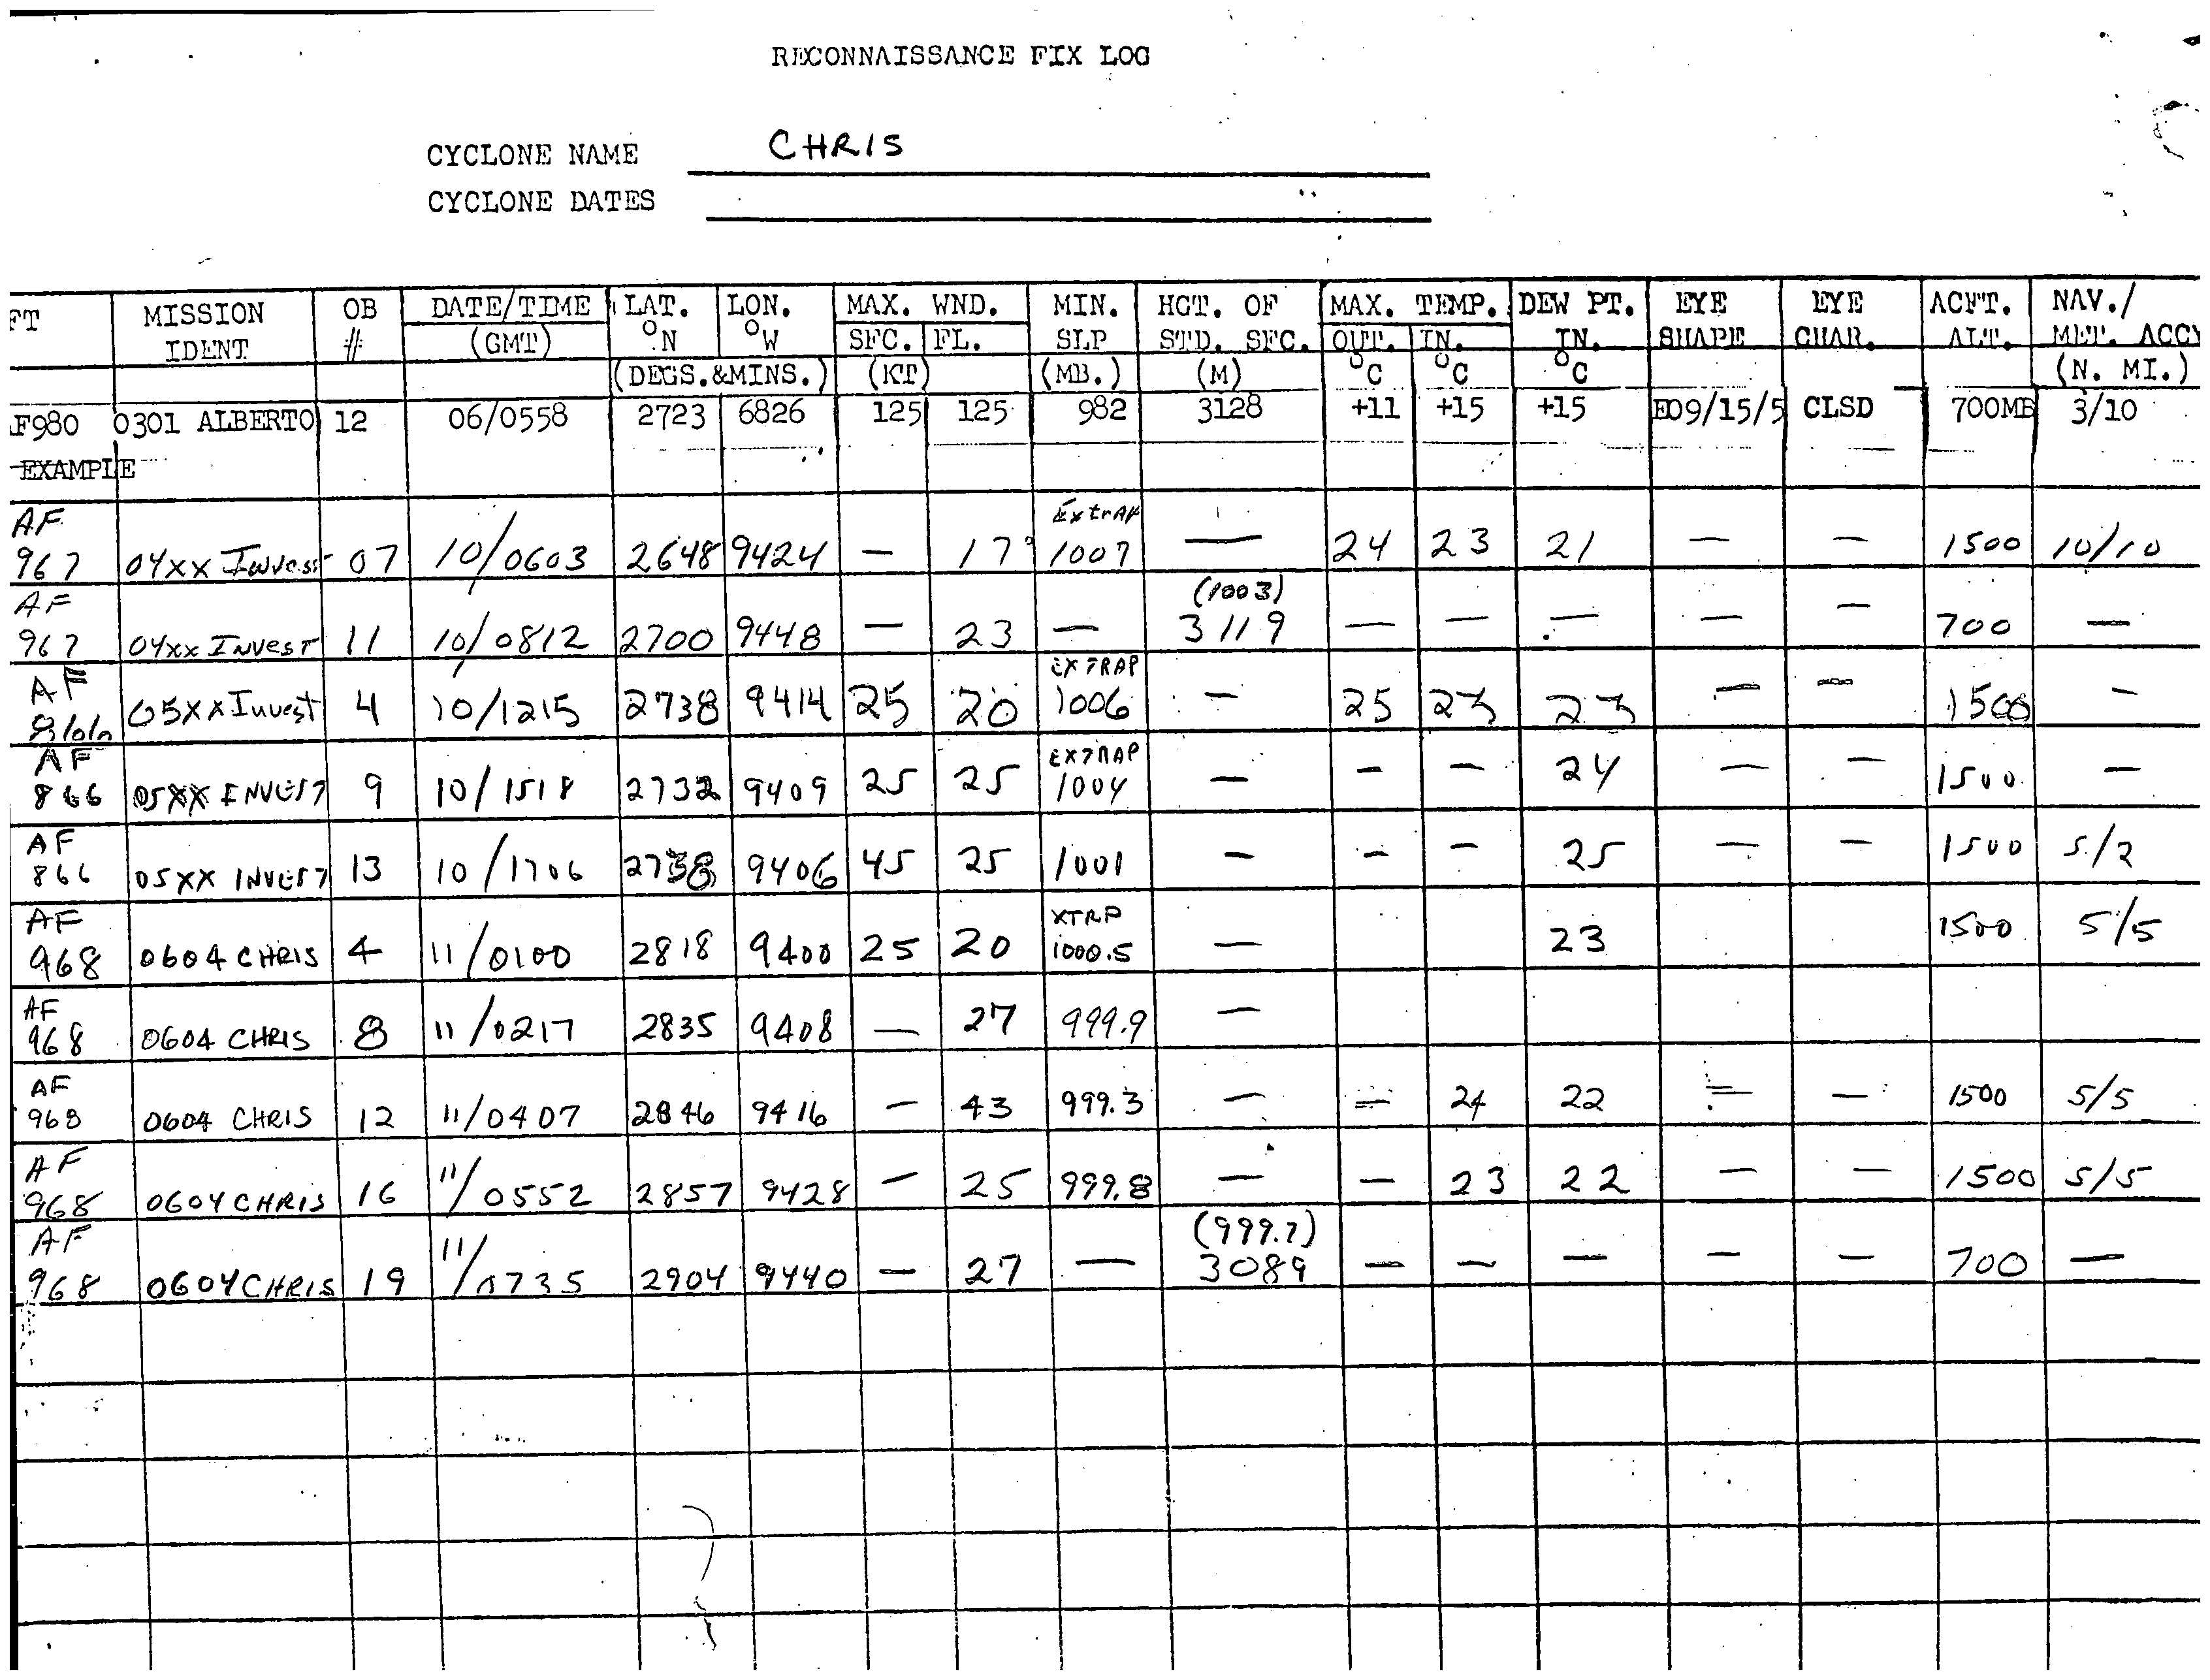 RECONNAISSANCE FIX LOG
CYCLONE NAME CHRIS
CYCLONE DATES
FT MISSION IDENT OB # DATE/TIME (GMT) LAT. °N LON. °W (DEGS.&MINS.) MAX. WND. SFC. FL. (KT) MIN. SLP (MB.) HGT. OF STD. SFC. (M) MAX. TEMP. OUT. °C IN. °C DEW PT. IN. °C EYE SHAPE EYE CHAR. ACFT. ALT. NAV./ MET. ACCY (N. MI.)
AF980 0301 ALBERTO 12 06/0558 2723 6826 125 125 982 3128 +11 +15 +15 E09/15/5 CLSD 700MB 3/10
EXAMPLE
AF 967 04xx Invest 07 10/0603 2648 9424 — 17 Extrap 1007 — 24 23 21 — — 1500 10/10
AF 967 04xx Invest 11 10/0812 2700 9448 — 23 — (1003) 3119 — — — — — 700 —
AF 866 05xx Invest 4 10/1215 2738 9414 25 20 EXTRAP 1006 — 25 23 23 — — 1500 —
AF 866 05XX INVEST 9 10/1518 2732 9409 25 25 EXTRAP 1004 — — — 24 — — 1500 —
AF 866 05XX INVEST 13 10/1706 2738 9406 45 25 1001 — — — 25 — — 1500 5/2
AF 968 0604 CHRIS 4 11/0100 2818 9400 25 20 XTRP 1000.5 — 23 1500 5/5
AF 968 0604 CHRIS 8 11/0217 2835 9408 — 27 999.9 —
AF 968 0604 CHRIS 12 11/0407 2846 9416 — 43 999.3 — — 24 22 — — 1500 5/5
AF 968 0604 CHRIS 16 11/0552 2857 9428 — 25 999.8 — — 23 22 — — 1500 5/5
AF 968 0604 CHRIS 19 11/0735 2904 9440 — 27 — (999.7) 3089 — — — — — 700 —